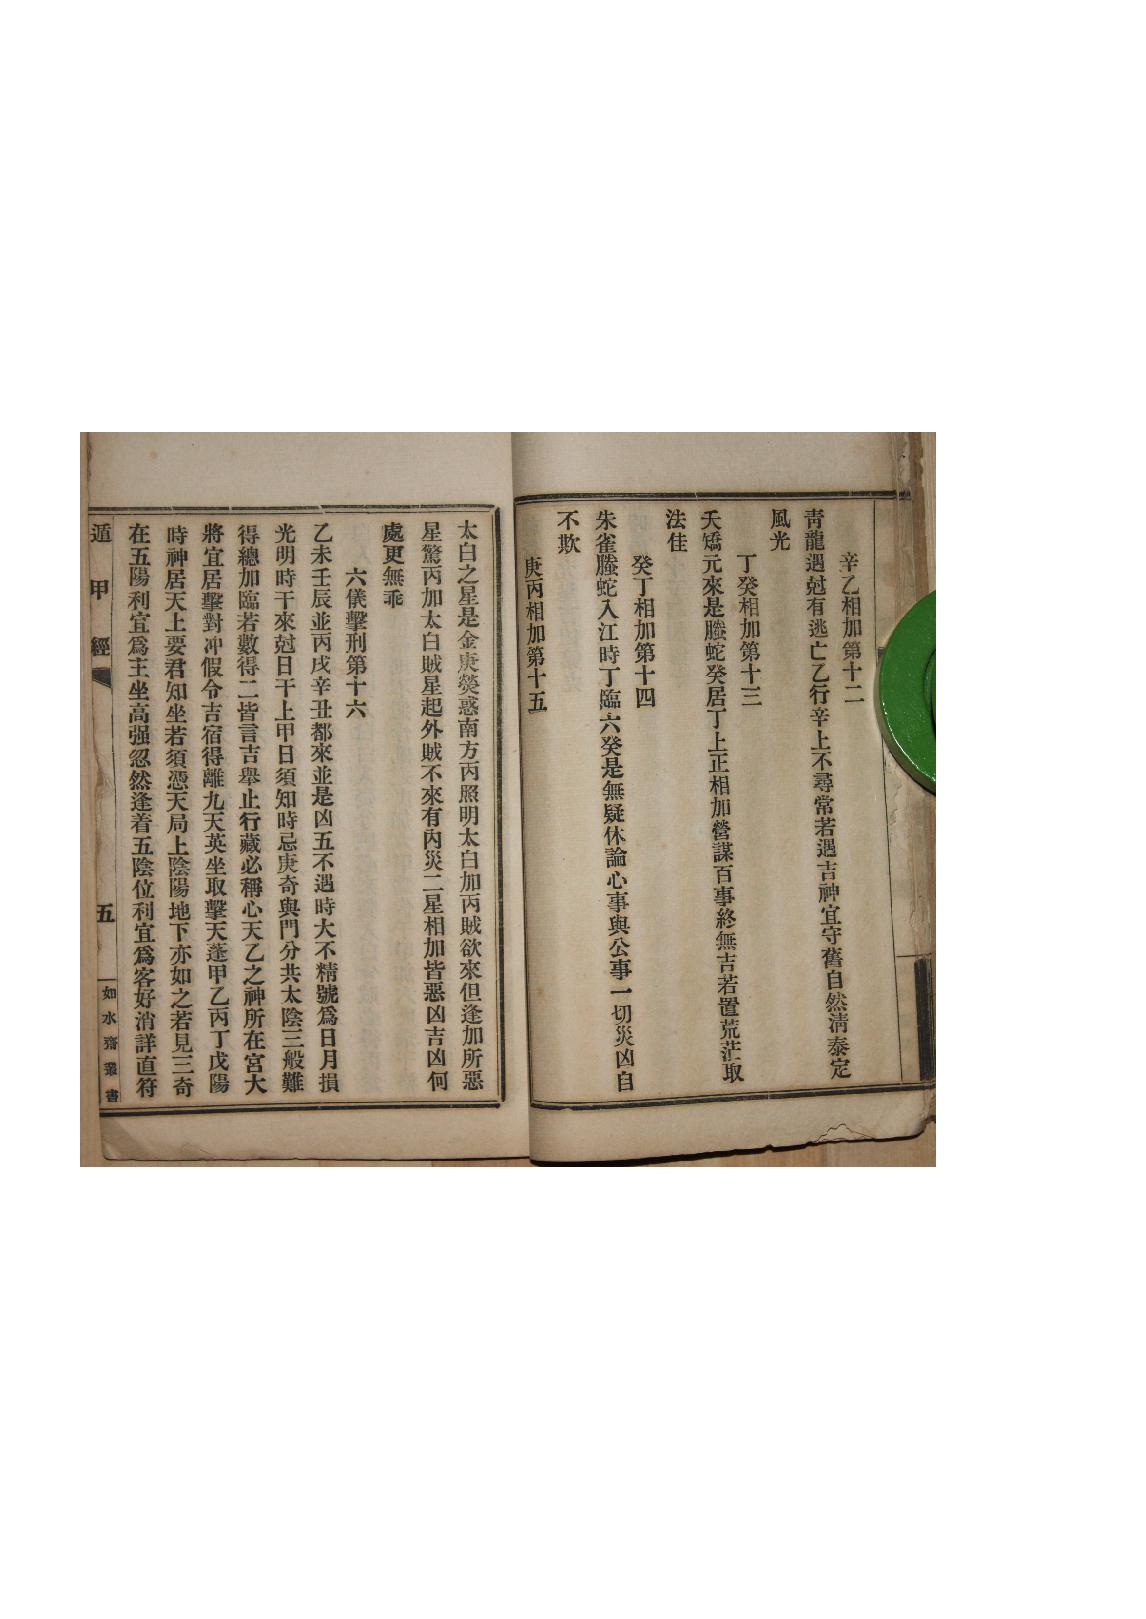 辛乙相加第十二
靑龍遇尅有逃亡乙行辛上不尋常若遇吉神宜守舊自然淸泰定
風光
丁癸相加第十三
夭矯元來是螣蛇癸居丁上正相加營謀百事終無吉若置荒茫取
法佳
癸丁相加第十四
朱雀螣蛇入江時丁臨六癸是無疑休論心事與公事一切災凶自
不欺
庚丙相加第十五
太白之星是金庚熒惑南方丙照明太白加丙賊欲來但逢加所惡
星驚丙加太白賊星起外賊不來有內災二星相加皆惡凶吉凶何
處更無乖
六儀擊刑第十六
乙未壬辰並丙戌辛丑都來並是凶五不遇時大不精號爲日月損
光明時干來尅日干上甲日須知時忌庚奇與門分共太陰三般難
得總加臨若數得二皆言吉舉止行藏必稱心天乙之神所在宮大
將宜居擊對冲假令吉宿得離九天英坐取擊天蓬甲乙丙丁戊陽
時神居天上要君知坐若須憑天局上陰陽地下亦如之若見三奇
在五陽利宜爲主坐高强忽然逢着五陰位利宜爲客好消詳直符
遁甲經
五
如水齋叢書